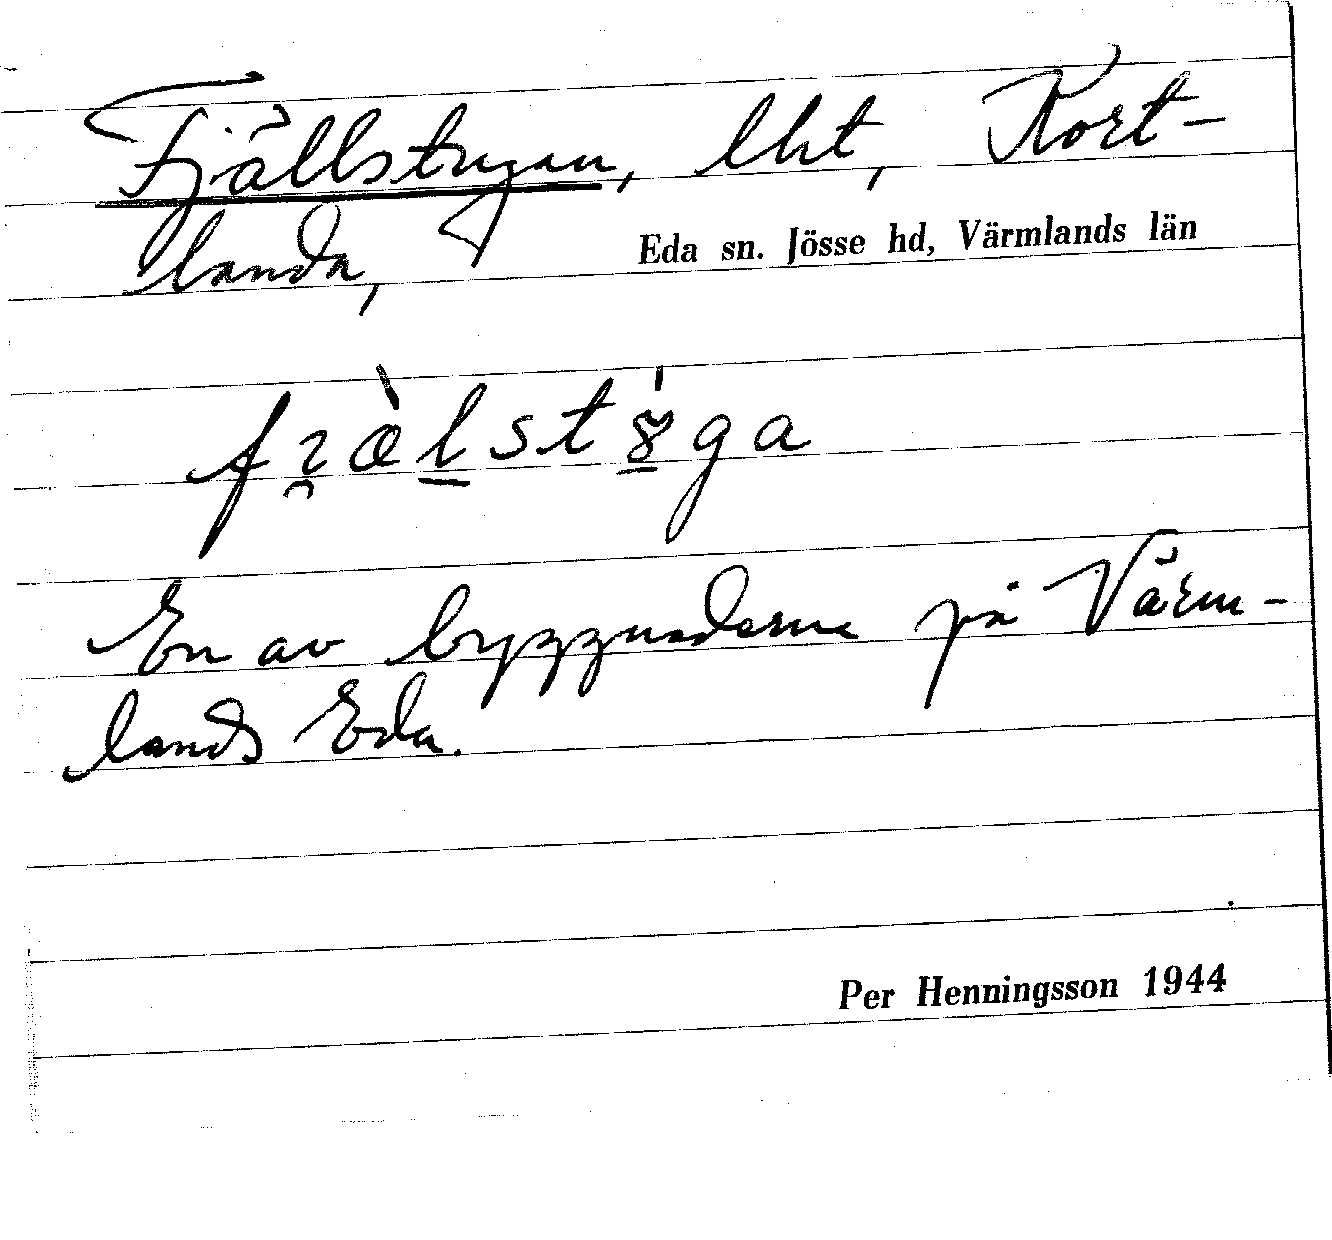 Fjällstugan, lht, Kort-
landa,
Eda sn. Jösse hd, Värmlands län
En av byggnaderna på Värm-
lands Eda.
Per Henningsson 1944